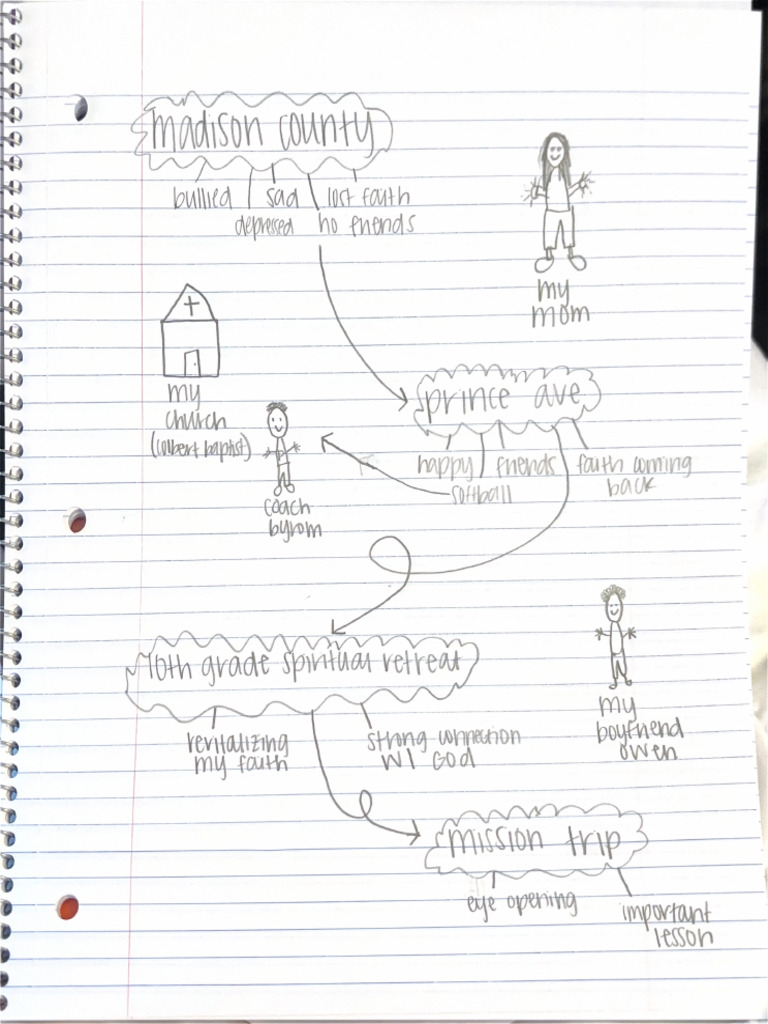 madison county
bullied sad lost faith
depressed no friends
my
mom
my
church
(colbert baptist)
prince ave
happy friends faith coming
softball back
coach
byrom
10th grade spiritual retreat
revitalizing
my faith
strong connection
w/ God
my
boyfriend
owen
mission trip
eye opening
important
lesson